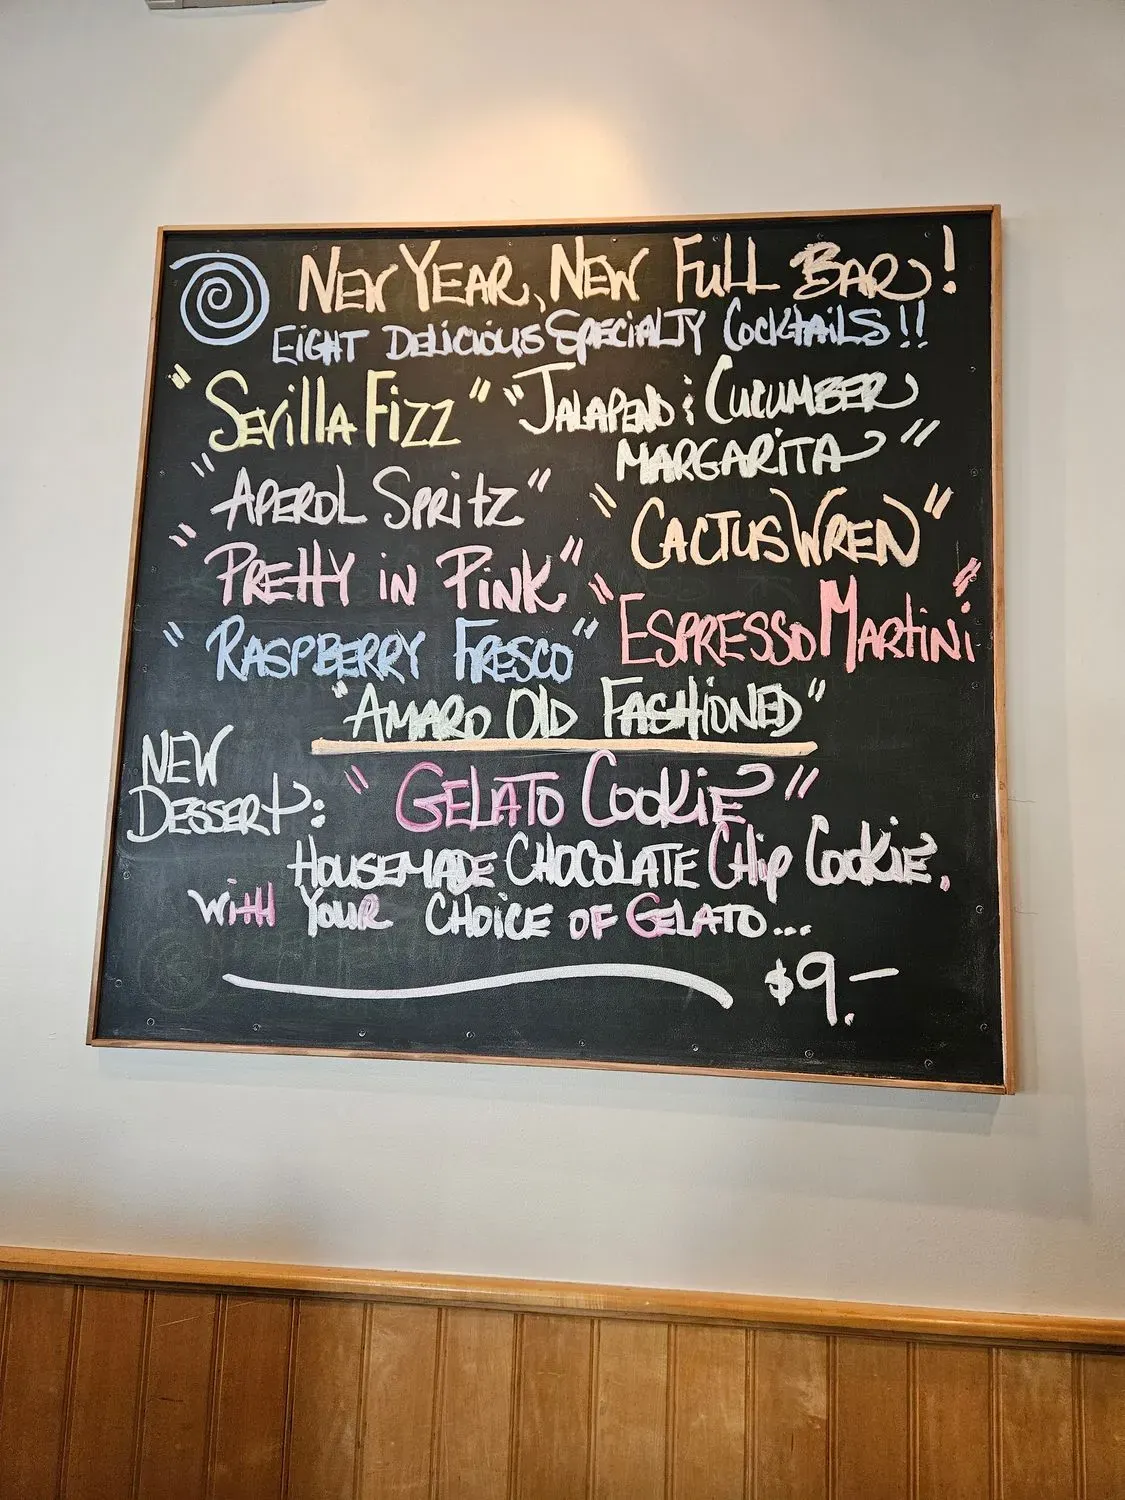 New Year, New Full Bar!
Eight Delicious Specialty Cocktails!!
"Sevilla Fizz"
"Jalapeno & Cucumber
Margarita"
"Aperol Spritz"
"Cactus Wren"
"Pretty in Pink"
"Espresso Martini"
"Raspberry Fresco"
"Amaro Old Fashioned"
New
Dessert: "Gelato Cookie"
Housemade Chocolate Chip Cookie,
with Your Choice of Gelato...
$9.-